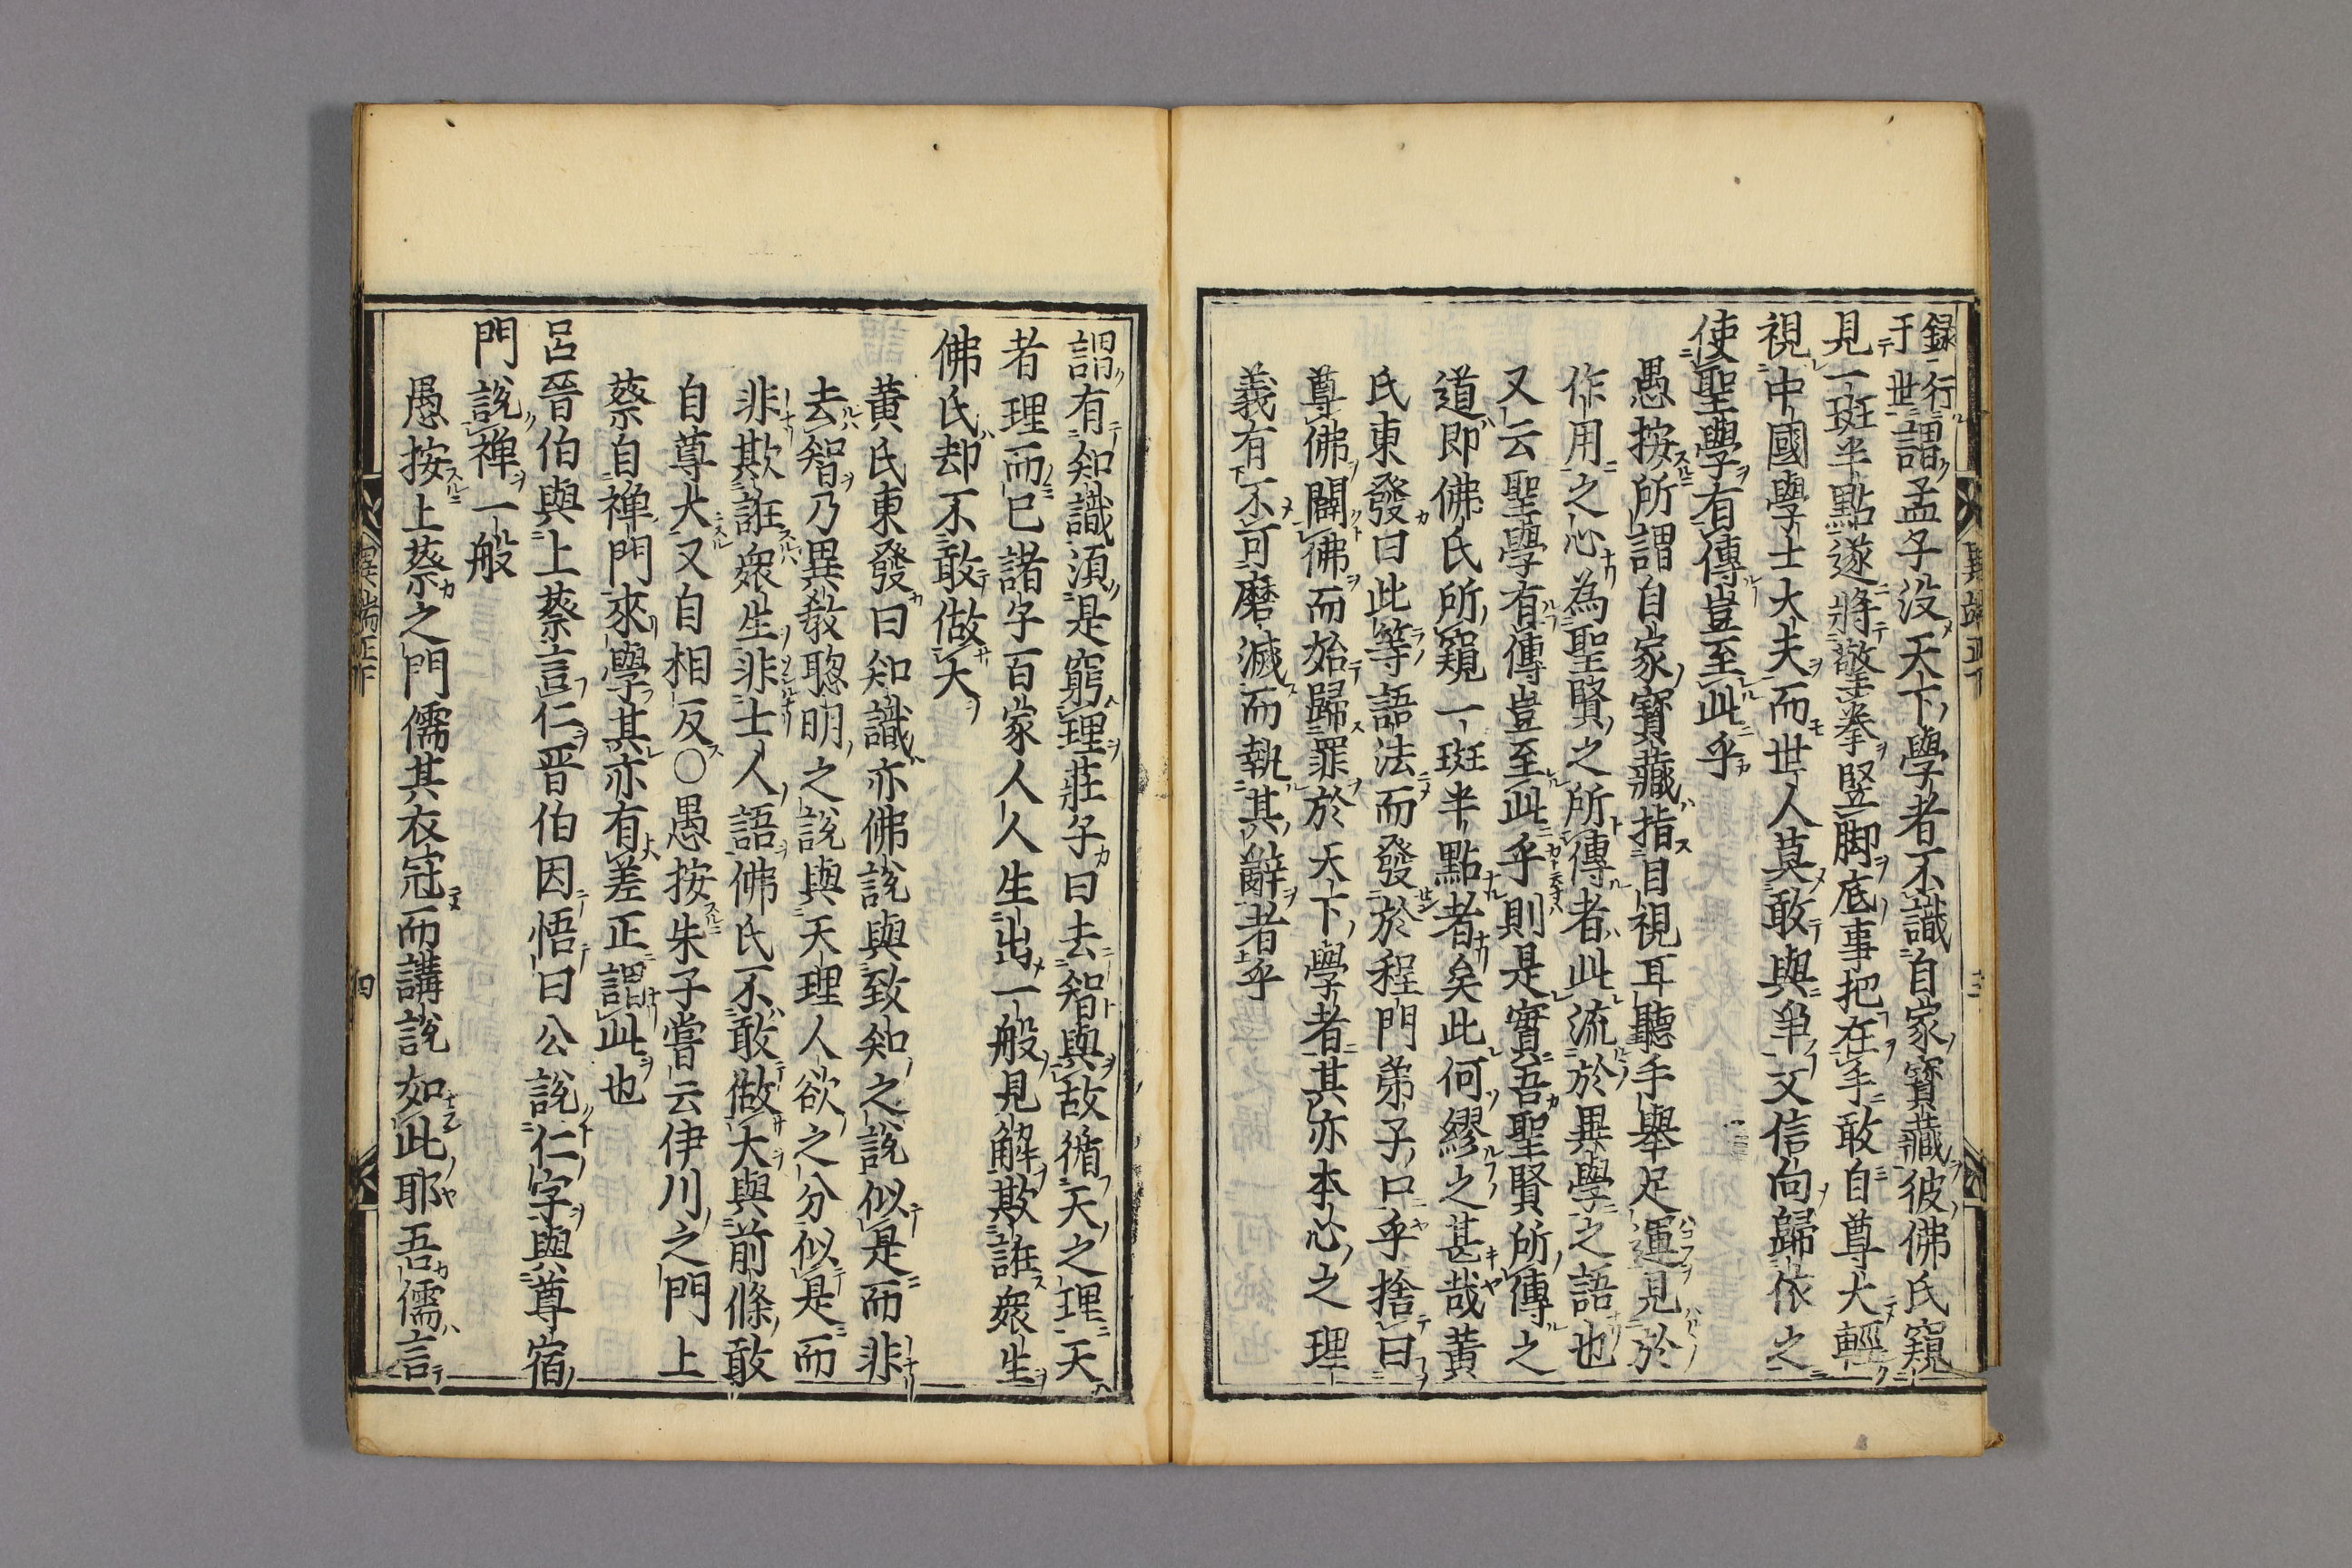 録行于世謂孟子没天下學者不識自家寶藏彼佛氏窺
見一斑半點遂將擎拳竪脚底事把在手敢自尊大輕
視中國學士大夫而世人莫敢與爭又信向歸依之
使聖學有傳豈至此乎
愚按所謂自家寶藏指目視耳聽手舉足運見於
作用之心為聖賢之所傳者此流於異學之語也
又云聖學有傳豈至此乎則是實吾聖賢所傳之
道即佛氏所窺一斑半點者矣此何繆之甚哉黄
氏東發曰此等語法而發於程門弟子口乎捨曰
尊佛闢佛而始歸罪於天下學者其亦本心之理
義有不可磨滅而執其辭者乎
謂有知識須是窮理莊子曰去智與故循天之理天
者理而已諸子百家人人生出一般見解欺誑衆生
佛氏却不敢做大
黄氏東發曰知識亦佛說與致知之說似是而非
去智乃異教聦明之說與天理人欲之分似是而
非欺誑衆生非士人語佛氏不敢做大與前條敢
自尊大又自相反○愚按朱子嘗云伊川之門上
蔡自禅門來學其亦有差正謂此也
呂晉伯與上蔡言仁晋伯因悟曰公說仁字與尊宿
門說禅一般
愚按上蔡之門儒其衣冠而講說如此耶吾儒言
異端正下
四